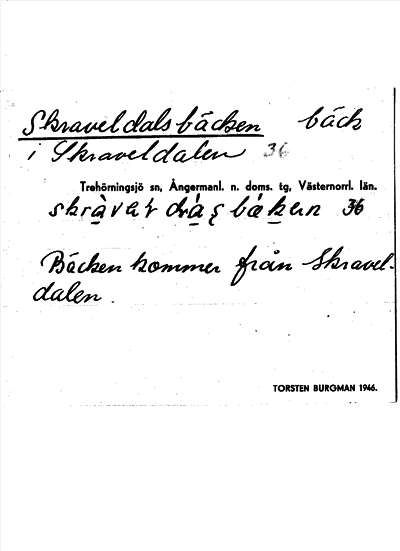 Skraveldalsbäcken bäck
i Skraveldalen 36
Trehörningsjö sn, Ångermanl. n. doms. tg, Västernorrl. län.
36
Bäcken kommer från Skravel-
dalen.
TORSTEN BURGMAN 1946.